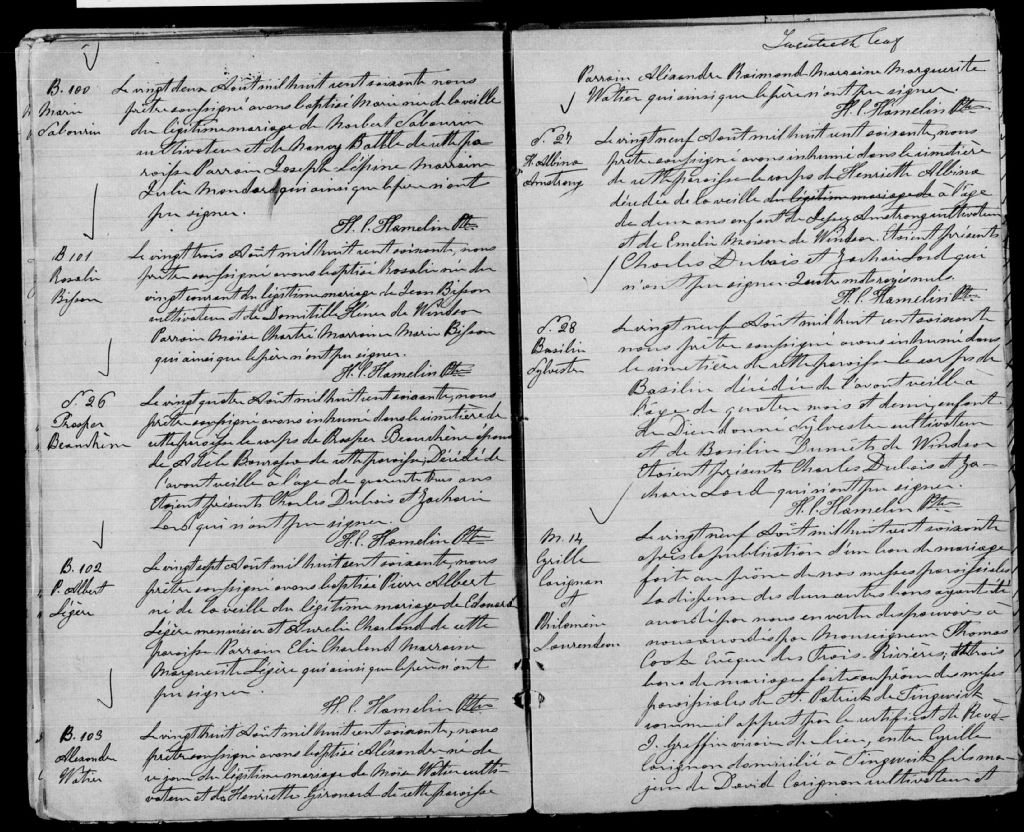 B. 100
Marie
Sabourin
Le vingt deux Août mil huit cent soixante nous
prêtre soussigné avons baptisé Marie née de la veille
du légitime mariage de Norbert Sabourin
cultivateur et de Nancy Battle de cette pa-
roisse Parrain Joseph Lépine marraine
Julie Mondard qui ainsi que le père n'ont
pu signer.
H. C. Hamelin Ptre
B 101
Rosalie
Bisson
Le vingt trois Août mil huit cent soixante, nous
prêtre soussigné avons baptisé Rosalie née du
vingt courant du légitime mariage de Jean Bisson
cultivateur et de Domitille Héneu de Windsor
Parrain Moïse Chartré Marraine Marie Bisson
qui ainsi que le père n'ont pu signer.
H. C. Hamelin Ptre
S. 26
Prosper
Beauchêne
Le vingt quatre Août mil huit cent soixante, nous
prêtre soussigné avons inhumé dans le cimetière de
cette paroisse le corps de Prosper Beauchêne époux
de Adèle Bourassa de cette paroisse, Décédé de
l'avant veille à l'age de quarente trois ans
Etoient présents Charles Dubois et Zacharie
Lord qui n'ont pu signer.
H. C. Hamelin Ptre
B. 102
P. Albert
Légère
Le vingt sept Août mil huit cent soixante, nous
prêtre soussigné avons baptisé Pierre Albert
né de la veille du légitime mariage de Edouard
Légère menuisier et Aurelie Charland de cette
paroisse Parrain Elie Charland Marraine
Marguerite Légère qui ainsi que le père n'ont
pu signer.
H. C. Hamelin Ptre
B. 103
Alexandre
Watier
Le vingt huit Août mil huit cent soixante, nous
prêtre soussigné avons baptisé Alexandre né de
ce jour du légitime mariage de Moïse Watier culti-
vateur et de Henriette Girouard de cette paroisse
Twentieth leaf
Parrain Alexandre Raimond Marraine Marguerite
Watier qui ainsi que le père n'ont pu signer.
H. C. Hamelin Ptre
S. 27
H. Albina
Armstrong
Le vingt neuf Août mil huit cent soixante, nous
prêtre soussigné avons inhumé dans le cimetière
de cette paroisse le corps de Henriette Albina
décédée de la veille du légitime mariage de à l'age
de deux ans enfant de Armstrong cultivateur
et de Emelie Maison de Windsor. Etoient présents
Charles Dubois et Zacharie Lord qui
n'ont pu signer Quatre mots rayés nuls.
H. C. Hamelin Ptre
S. 28
Basilin
Sylvestre
Le vingt neuf Août mil huit cent soixante
nous prêtre soussigné avons inhumé dans
le cimetière de cette paroisse le corps de
Basilin décédée de l'avant veille à
l'age de quatre mois et demi enfant
de Dieudonné Sylvestre cultivateur
et de Basilin Dumète de Windsor
Etoient présents Charles Dubois et Za-
charie Lord qui n'ont pu signer.
H. C. Hamelin Ptre
M. 14
Cyrille
Corignan
et
Philomène
Laurendeau
Le vingt neuf Août mil huit cent soixante
après la publication d'un ban de mariage
faite au prône de nos messes paroissiales
La dispense des deux autres bans ayant été
accordée par nous en vertu des pouvoirs à
nous accordés par Monseigneur Thomas
Cook Evêque des Trois Rivières, et trois
bans de mariages faits au prone des messes
paroissiales de St Patrick de Tingwick
comme il appert par le certificat de Revd
J. Griffin vicaire du lieu, entre Cyrille
Corignan domicilié à Tingwick fils ma-
jeur de David Corignan cultivateur et